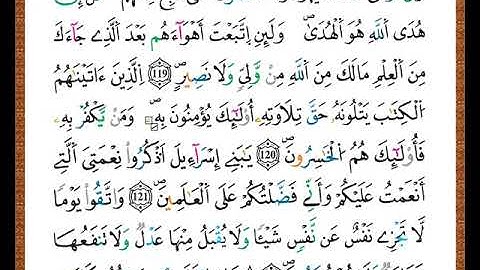 هُدَى اَللَّهِ هُوَ اَلْهُدَىٰ ۖ وَلَئِنِ اِتَّبَعْتَ أَهْوَآءَهُم بَعْدَ اَلَّذِے جَآءَكَ
مِنَ اَلْعِلْمِ مَا لَكَ مِنَ اَللَّهِ مِنْ وَّلِيّٖ وَلَا نَصِيرٍ ۖ 119 اِ۬لَّذِينَ ءَاتَيْنَٰهُمُ
اُ۬لْكِتَٰبَ يَتْلُونَهُۥ حَقَّ تِلَاوَتِهِۦٓ أُوْلَٰٓئِكَ يُؤْمِنُونَ بِهِۦ ۖ وَمَنْ يَّكْفُرْ بِهِۦ
فَأُوْلَٰٓئِكَ هُمُ اُ۬لْخَٰسِرُونَ ۖ 120 يَٰبَنِےٓ إِسْرَآءِيلَ اَ۟ذْكُرُواْ نِعْمَتِيَ اَ۬لَّتِےٓ
أَنْعَمْتُ عَلَيْكُمْ وَأَنِّے فَضَّلْتُكُمْ عَلَى اَ۬لْعَٰلَمِينَ ۖ 121 وَاتَّقُواْ يَوْماً
لَّا تَجْزِے نَفْسٌ عَن نَّفْسٖ شَيْـٔاً وَلَا يُقْبَلُ مِنْهَا عَدْلٞ وَلَا تَنفَعُهَا